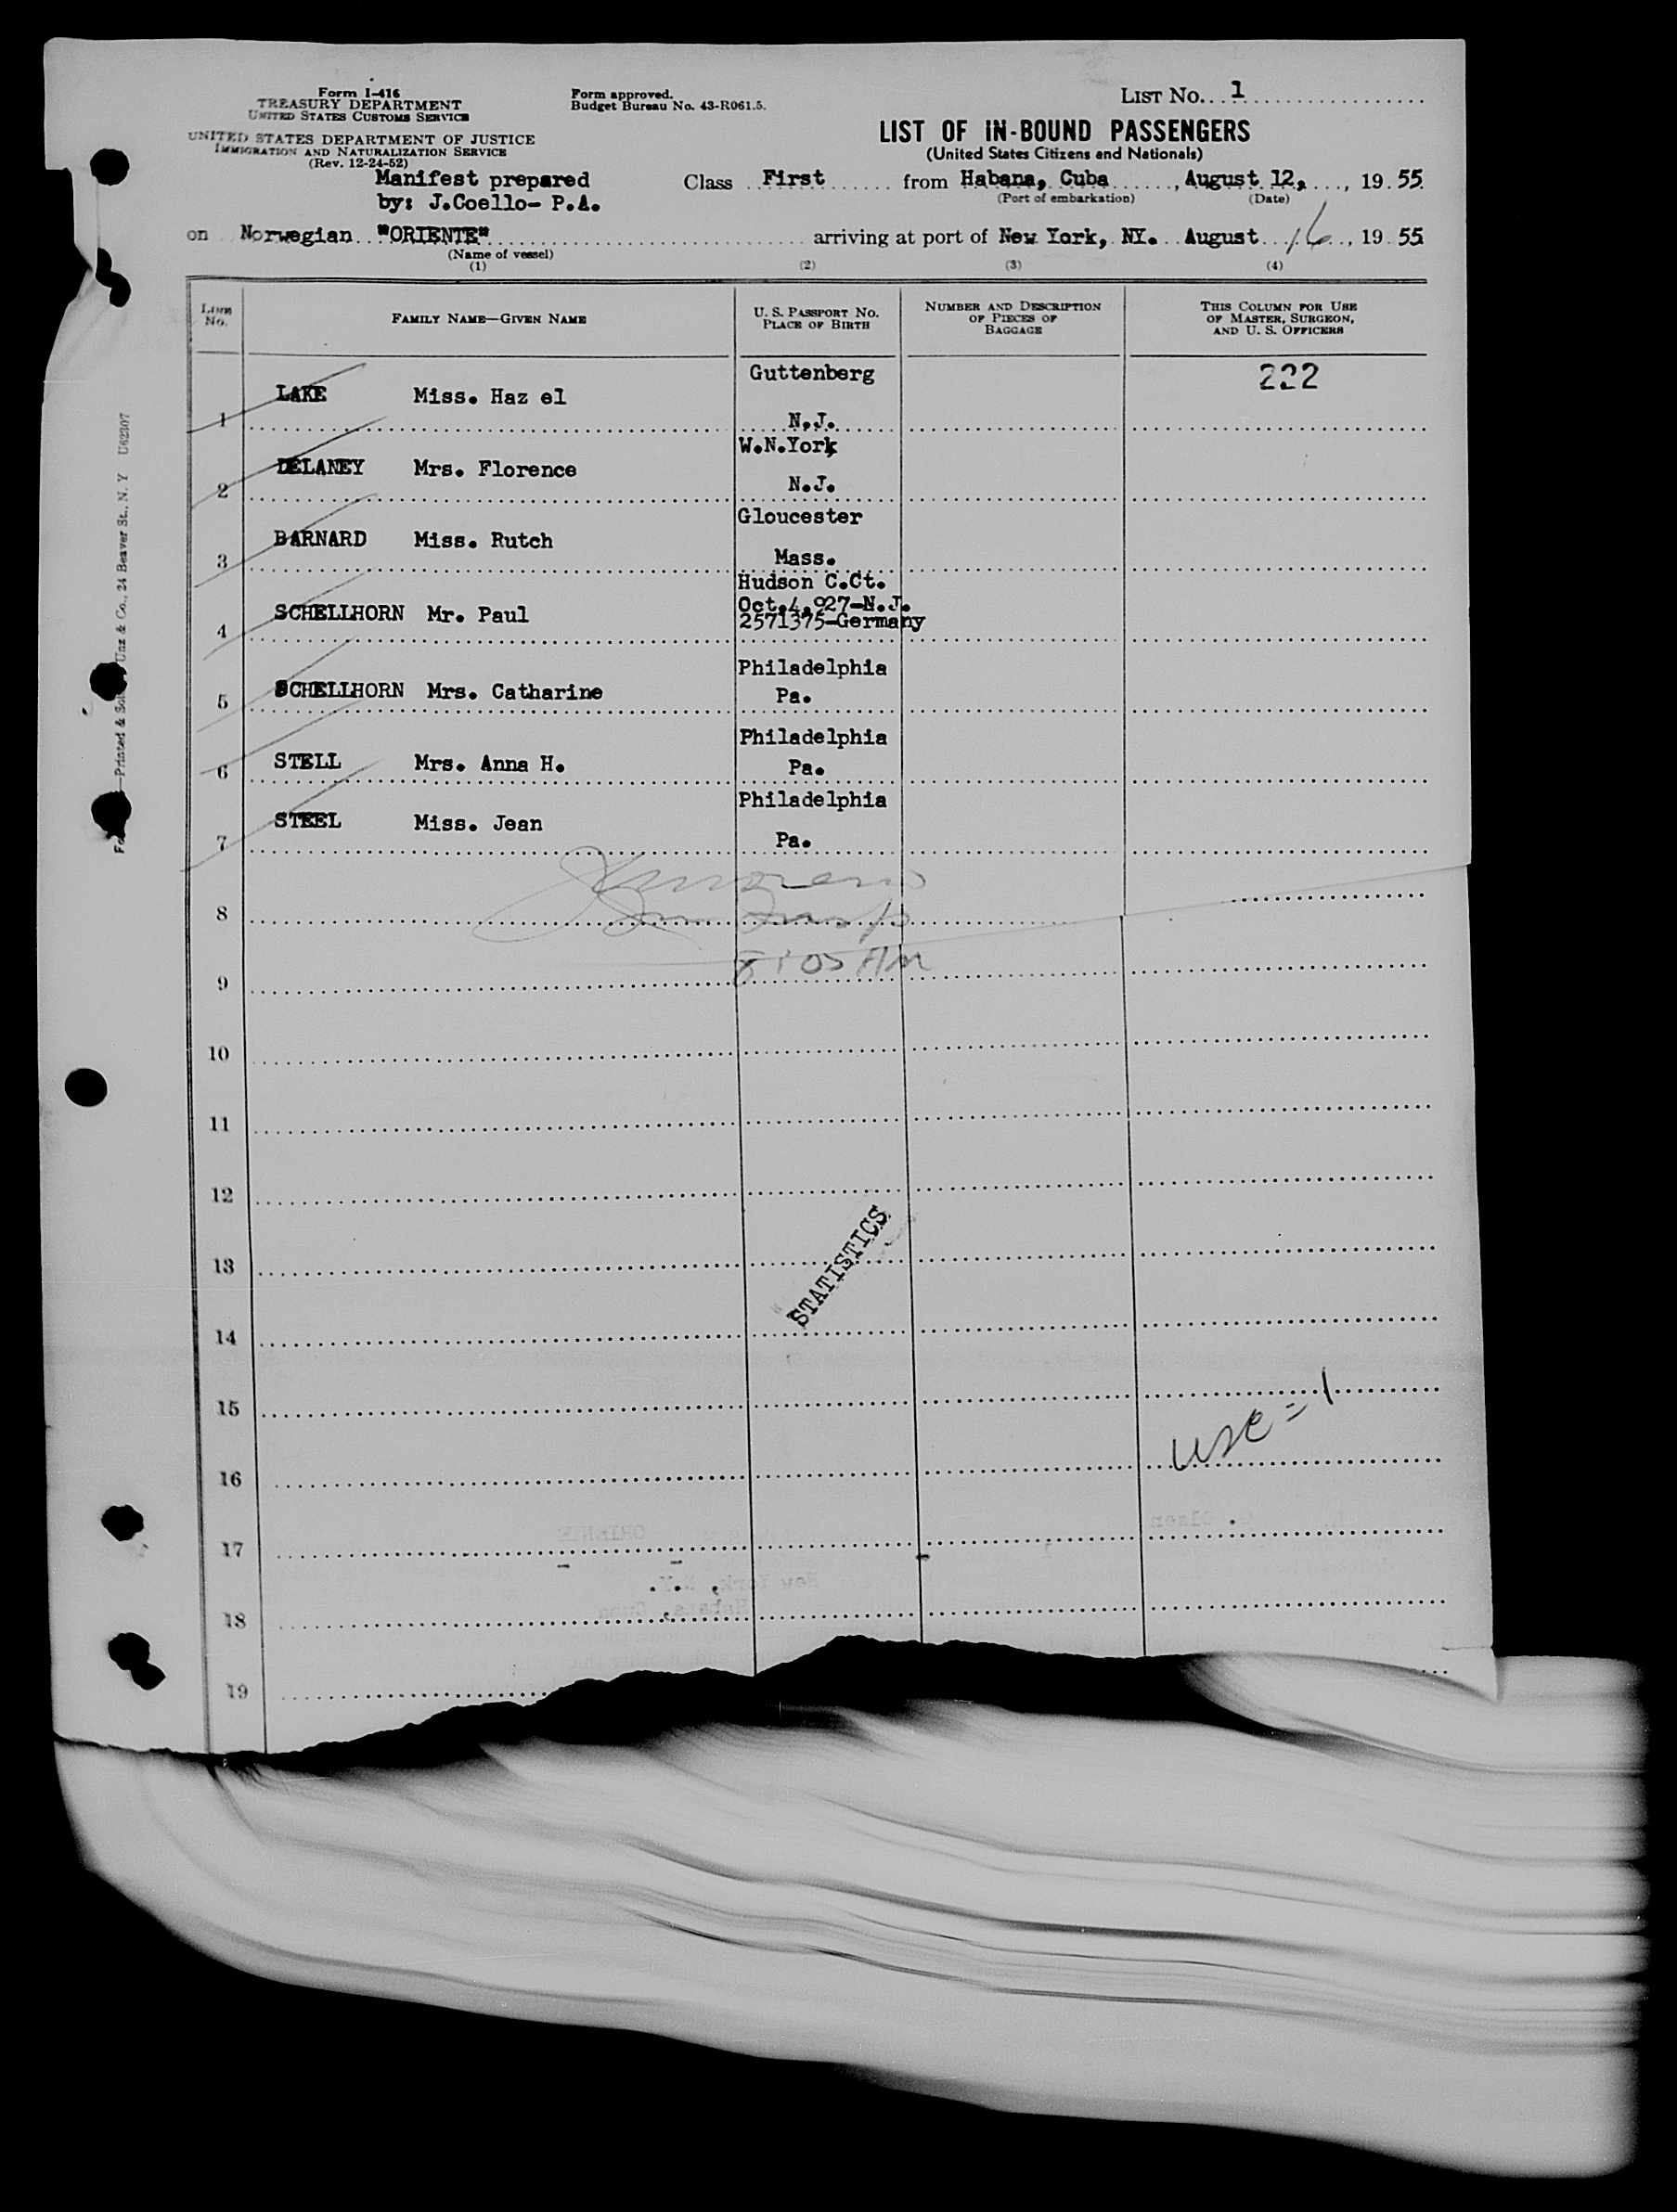 Form I-416
TREASURY DEPARTMENT
UNITED STATES CUSTOMS SERVICE
UNITED STATES DEPARTMENT OF JUSTICE
IMMIGRATION AND NATURALIZATION SERVICE
(Rev. 12-24-52)
Form approved.
Budget Bureau No. 43-R061.5.
LIST No. 1
LIST OF IN-BOUND PASSENGERS
(United States Citizens and Nationals)
Manifest prepared
by: J.Coello- P.A.
Class First from Habana, Cuba, August 12, 19 55
(Port of embarkation) (Date)
on Norwegian "ORIENTE" arriving at port of New York, NY. August 16, 19 55
(Name of vessel)
(1) (2) (3) (4)
LINE No.
FAMILY NAME—GIVEN NAME
U. S. PASSPORT No.
PLACE OF BIRTH
NUMBER AND DESCRIPTION
OF PIECES OF
BAGGAGE
THIS COLUMN FOR USE
OF MASTER, SURGEON,
AND U. S. OFFICERS
222
1 LAKE Miss. Haz el Guttenberg
N.J.
2 DELANEY Mrs. Florence W.N.York
N.J.
3 BARNARD Miss. Rutch Gloucester
Mass.
4 SCHELLHORN Mr. Paul Hudson C.Ct.
Oct.4.927-N.J.
2571375-Germany
5 SCHELLHORN Mrs. Catharine Philadelphia
Pa.
6 STELL Mrs. Anna H. Philadelphia
Pa.
7 STEEL Miss. Jean Philadelphia
Pa.
8
8:05 AM
9
10
11
12
STATISTICS
13
14
15
usc = 1
16
17
18
19
24 Beaver St., N. Y U62307